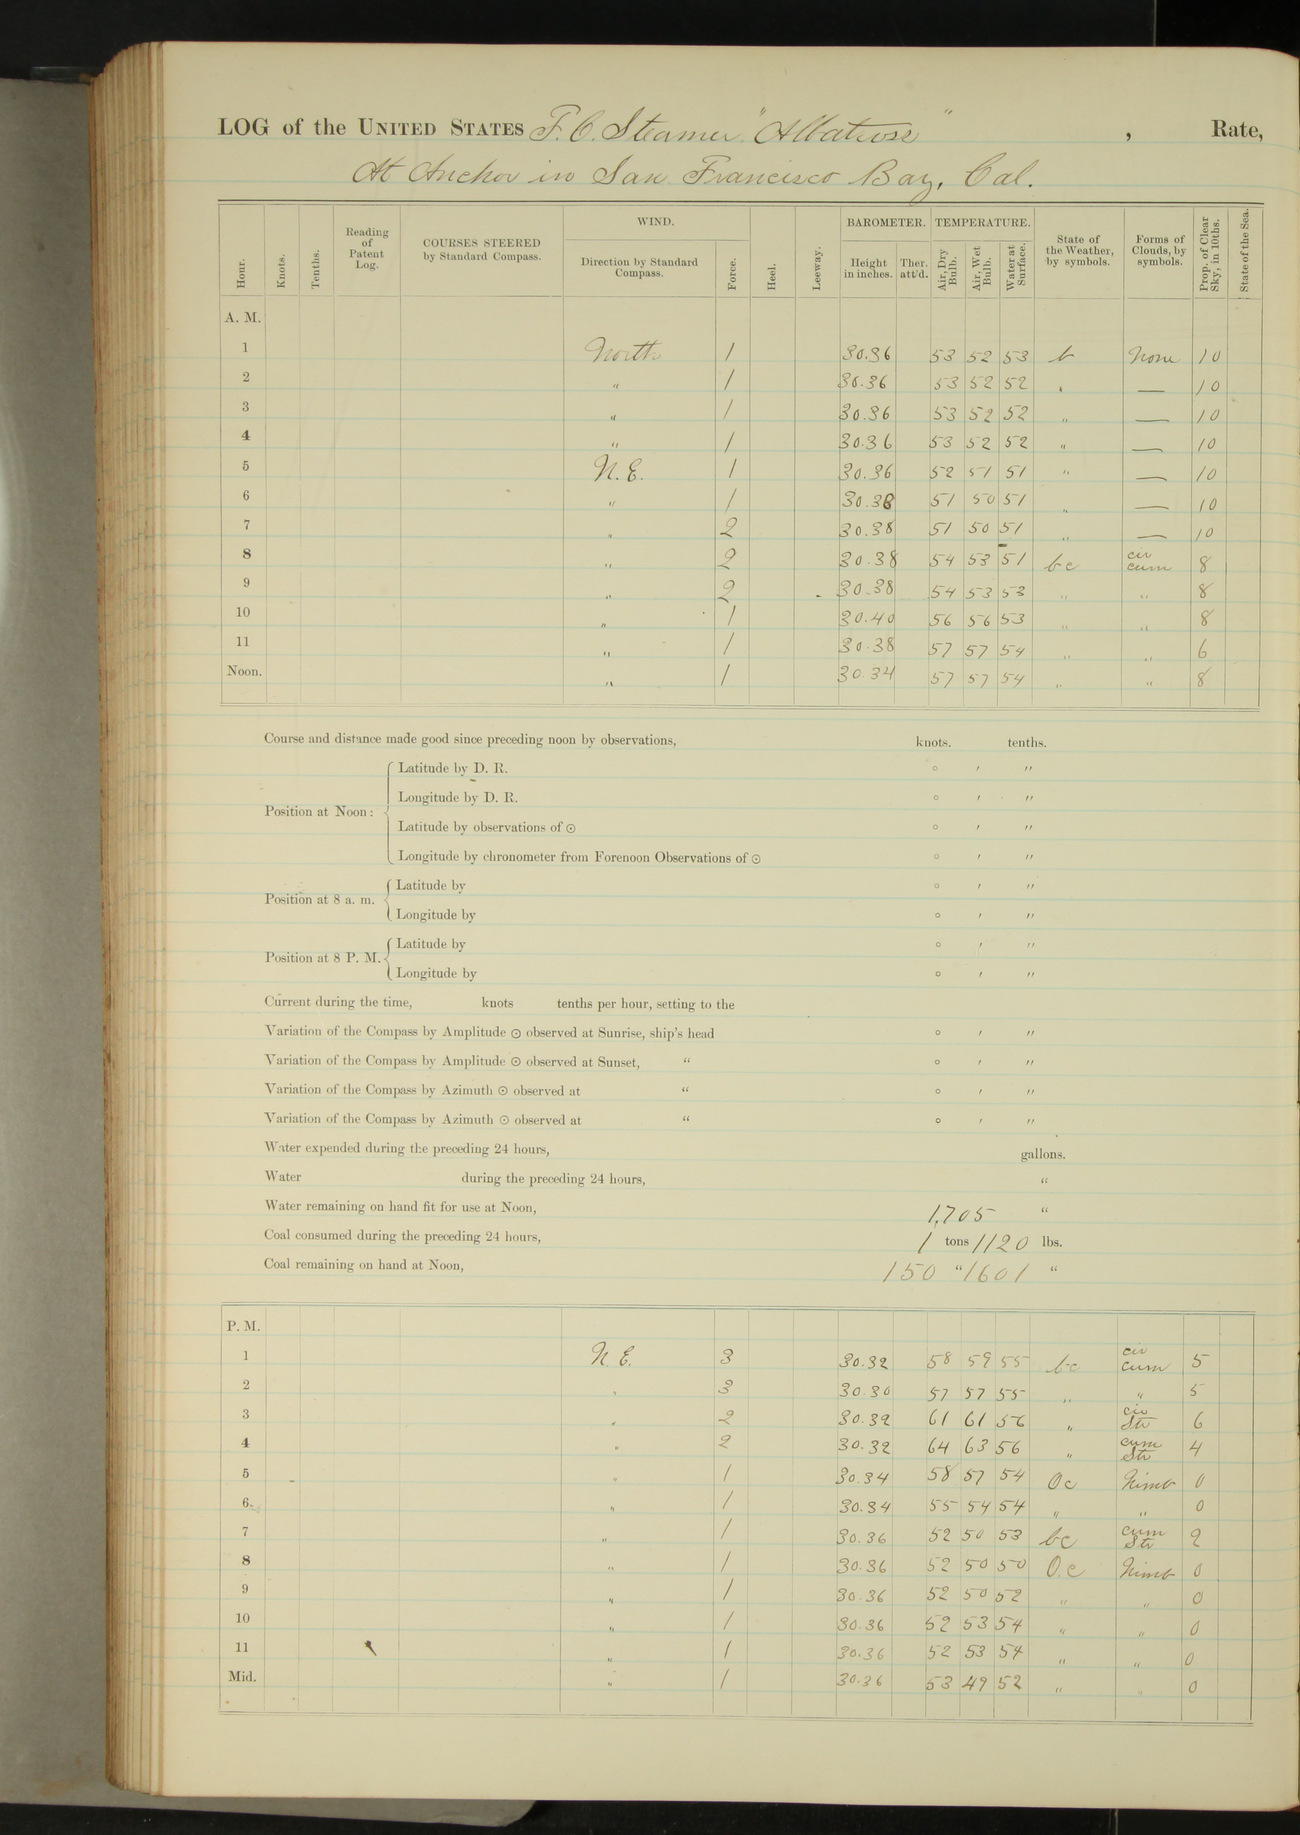 LOG of the UNITED STATES F. C. Steamer "Albatross", Rate,
At Anchor in San Francisco Bay, Cal.
Hour. Knots. Tenths. Reading of Patent Log. COURSES STEERED by Standard Compass. WIND. Direction by Standard Compass. Force. Heel. Leeway. BAROMETER. Height in inches. Ther. att'd. TEMPERATURE. Air, Dry Bulb. Air, Wet Bulb. Water at Surface. State of the Weather, by symbols. Forms of Clouds, by symbols. Prop. of Clear Sky, in 10ths. State of the Sea.
A. M.
1 North 1 30.36 53 52 53 b None 10
2 " 1 30.36 53 52 52 " — 10
3 " 1 30.36 53 52 52 " — 10
4 " 1 30.36 53 52 52 " — 10
5 N. E. 1 30.36 52 51 51 " — 10
6 " 1 30.38 51 50 51 " — 10
7 " 2 30.38 51 50 51 " — 10
8 " 2 30.38 54 53 51 bc cir cum 8
9 " 2 30.38 54 53 53 " " 8
10 " 1 30.40 56 56 53 " " 8
11 " 1 30.38 57 57 54 " " 6
Noon. " 1 30.34 57 57 54 " " 8
Course and distance made good since preceding noon by observations, knots. tenths.
Latitude by D. R. ° ′ ″
Longitude by D. R. ° ′ ″
Position at Noon:
Latitude by observations of ☉ ° ′ ″
Longitude by chronometer from Forenoon Observations of ☉ ° ′ ″
Latitude by ° ′ ″
Position at 8 a. m.
Longitude by ° ′ ″
Latitude by ° ′ ″
Position at 8 P. M.
Longitude by ° ′ ″
Current during the time, knots tenths per hour, setting to the
Variation of the Compass by Amplitude ☉ observed at Sunrise, ship's head ° ′ ″
Variation of the Compass by Amplitude ☉ observed at Sunset, " ° ′ ″
Variation of the Compass by Azimuth ☉ observed at " ° ′ ″
Variation of the Compass by Azimuth ☉ observed at " ° ′ ″
Water expended during the preceding 24 hours, gallons.
Water during the preceding 24 hours, "
Water remaining on hand fit for use at Noon, 1,705 "
Coal consumed during the preceding 24 hours, 1 tons 1120 lbs.
Coal remaining on hand at Noon, 150 " 1601 "
P. M.
1 N. E. 3 30.32 58 59 55 bc cir cum 5
2 " 3 30.30 57 57 55 " " 5
3 " 2 30.32 61 61 56 " cir Str 6
4 " 2 30.32 64 63 56 " cum Str 4
5 " 1 30.34 58 57 54 Oc Nimb 0
6 " 1 30.34 55 54 54 " " 0
7 " 1 30.36 52 50 53 bc cum Str 2
8 " 1 30.36 52 50 50 O.c Nimb 0
9 " 1 30.36 52 50 52 " " 0
10 " 1 30.36 52 53 54 " " 0
11 " 1 30.36 52 53 54 " " 0
Mid. " 1 30.36 53 49 52 " " 0